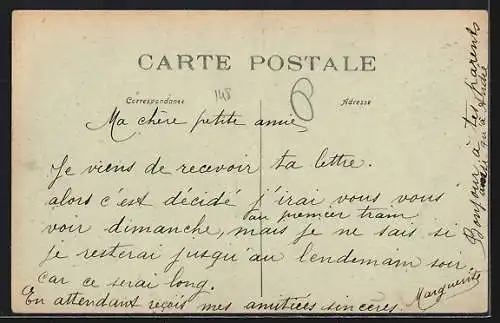 CARTE POSTALE
Correspondance
148
6
Adresse
Ma chère petite amie,
Je viens de recevoir ta lettre.
alors c'est décidé j'irai vous vous
au premier tram
voir dimanche, mais je ne sais si
je resterai jusqu'au lendemain soir
car ce serai long.
En attendant reçois mes amitiées sincères.
Marguerite
Bonjour à tes parents
qu'à André